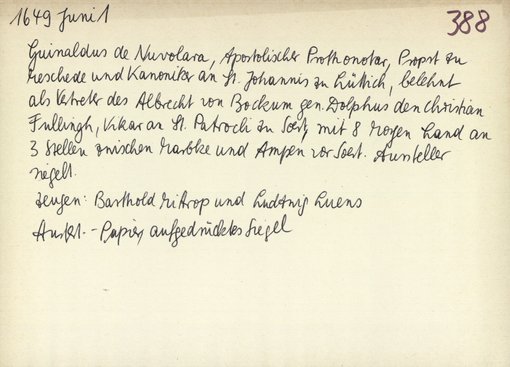 1649 Juni 1
388
Guinaldus de Nuvolara, Apostolischer Prothonotar, Propst zu
Meschede und Kanoniker an St. Johannis zu Lüttich, belehnt
als Vertreter des Albrecht von Bockum gen. Dolphus den Christian
Fullingh, Vikar an St. Patrocli zu Soest, mit 8 Morgen Land an
3 Stellen zwischen Marbke und Ampen vor Soest. Aussteller
siegelt.
Zeugen: Barthold Mittrop und Ludtwig Luens
Ausfert. - Papier, aufgedrücktes Siegel